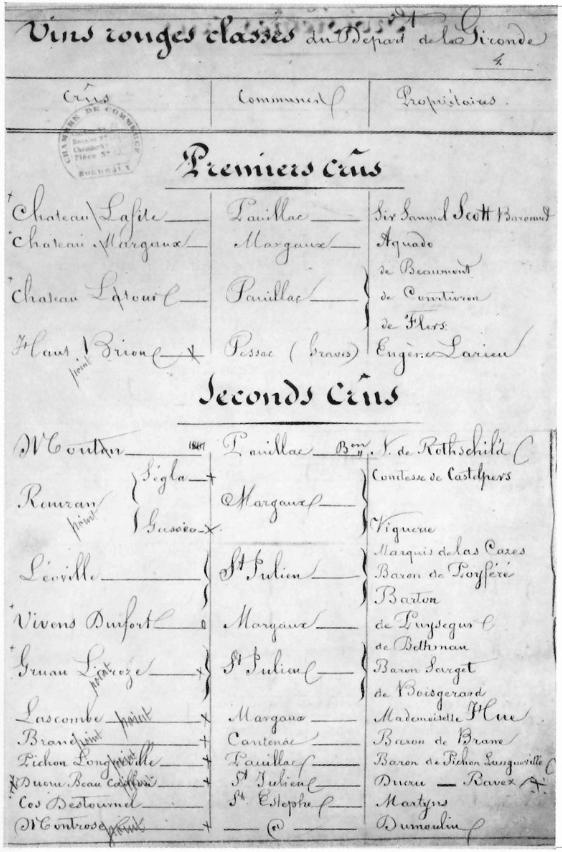 Vins rouges classés du Départ de la Gironde
4.
Crûs Communes Propriétaires.
CHAMBRE DE COMMERCE
BORDEAUX
Premiers crûs
Chateau Lafite Pauillac Sir Samuel Scott Baronnet
Chateau Margaux Margaux Aguado
de Beaumont
Chateau Latour Pauillac de Courtivron
de Flers.
Haut Brion Pessac (Graves) Eugène Larieu
point
Seconds Crûs
Mouton Pauillac Bon N. de Rothschild
Ségla Comtesse de Castelpers
Rauzan Margaux
point
Gassies Viguerie
Marquis de las Cazes
Léoville St Julien Baron de Poyféré
Barton
Vivens Durfort Margaux de Puysegur
de Bethman
Gruau Laroze St Julien Baron Sarget
point
de Boisgerard
Lascombe point Margaux Mademoiselle Hue
Brane point Cantenac Baron de Brane
Pichon Longueville point Pauillac Baron de Pichon Longueville
Ducru Beau Caillou St Julien Ducru Ravez
Cos Destournel St Estèphe Martyns
Montrose point Dumoulin